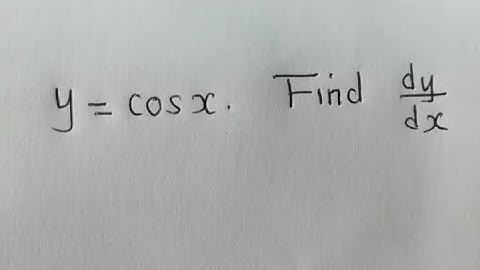 y = cos x. Find dy/dx